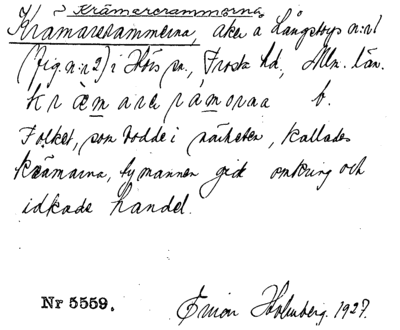 Krämareramorna
Kramareramorna, åker å Långstorps n:r 1
(fig. n:r 2) i Hörs sn, Frosta hd, Mlm. län.
kræ̀mararámorna b.
Folket, som bodde i närheten, kallades
krämarna, ty mannen gick omkring och
idkade handel.
Nr 5559. Holmberg. 1927.